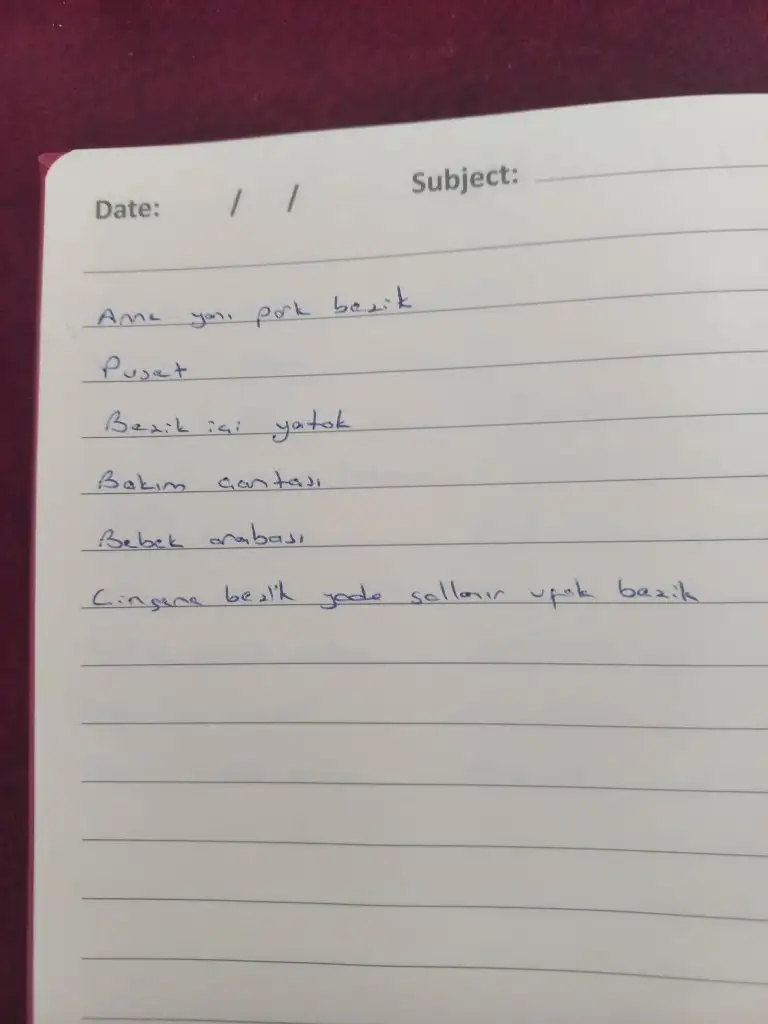 Date: / / Subject:
Anne yanı park beşik
Pusat
Beşik içi yatak
Bakım çantası
Bebek arabası
Çingene beşik yada sallanır ufak beşik